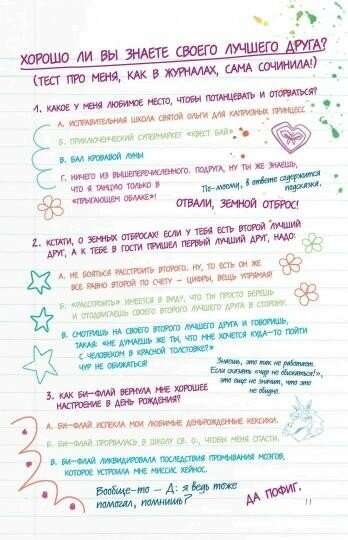 ХОРОШО ЛИ ВЫ ЗНАЕТЕ СВОЕГО ЛУЧШЕГО ДРУГА?
(ТЕСТ ПРО МЕНЯ, КАК В ЖУРНАЛАХ, САМА СОЧИНИЛА!)
1. КАКОЕ У МЕНЯ ЛЮБИМОЕ МЕСТО, ЧТОБЫ ПОТАНЦЕВАТЬ И ОТОРВАТЬСЯ?
А. ИСПРАВИТЕЛЬНАЯ ШКОЛА СВЯТОЙ ОЛЬГИ ДЛЯ КАПРИЗНЫХ ПРИНЦЕСС
Б. ПРИКЛЮЧЕНЧЕСКИЙ СУПЕРМАРКЕТ «КВЕСТ БАЙ»
В. БАЛ КРОВАВОЙ ЛУНЫ
Г. НИЧЕГО ИЗ ВЫШЕПЕРЕЧИСЛЕННОГО. ПОДРУГА, НУ ТЫ ЖЕ ЗНАЕШЬ,
ЧТО Я ТАНЦУЮ ТОЛЬКО В
«ПРЫГАЮЩЕМ ОБЛАКЕ»!
По-моему, в ответе содержится
подсказка.
ОТВАЛИ, ЗЕМНОЙ ОТБРОС!
2. КСТАТИ, О ЗЕМНЫХ ОТБРОСАХ! ЕСЛИ У ТЕБЯ ЕСТЬ ВТОРОЙ ЛУЧШИЙ
ДРУГ, А К ТЕБЕ В ГОСТИ ПРИШЕЛ ПЕРВЫЙ ЛУЧШИЙ ДРУГ, НАДО:
А. НЕ БОЯТЬСЯ РАССТРОИТЬ ВТОРОГО. НУ, ТО ЕСТЬ ОН ЖЕ
ВСЕ РАВНО ВТОРОЙ ПО СЧЕТУ – ЦИФРЫ, ВЕЩЬ УПРЯМАЯ!
Б. «РАССТРОИТЬ» ИМЕЕТСЯ В ВИДУ, ЧТО ТЫ ПРОСТО БЕРЕШЬ
И ОТОДВИГАЕШЬ СВОЕГО ВТОРОГО ЛУЧШЕГО ДРУГА В СТОРОНУ.
В. СМОТРИШЬ НА СВОЕГО ВТОРОГО ЛУЧШЕГО ДРУГА И ГОВОРИШЬ,
ТАКАЯ: «НЕ ДУМАЕШЬ ЖЕ ТЫ, ЧТО МНЕ ХОЧЕТСЯ КУДА-ТО ПОЙТИ
С ЧЕЛОВЕКОМ В КРАСНОЙ ТОЛСТОВКЕ?»
ЧУР НЕ ОБИЖАТЬСЯ!
Знаешь, это так не работает.
Если сказать «чур не обижаться!»,
это еще не значит, что это
не обидно.
3. КАК БИ-ФЛАЙ ВЕРНУЛА МНЕ ХОРОШЕЕ
НАСТРОЕНИЕ В ДЕНЬ РОЖДЕНИЯ?
А. БИ-ФЛАЙ ИСПЕКЛА МОИ ЛЮБИМЫЕ ДЕНЬРОЖДЕННЫЕ КЕКСИКИ.
Б. БИ-ФЛАЙ ПРОРВАЛАСЬ В ШКОЛУ СВ. О., ЧТОБЫ МЕНЯ СПАСТИ.
В. БИ-ФЛАЙ ЛИКВИДИРОВАЛА ПОСЛЕДСТВИЯ ПРОМЫВАНИЯ МОЗГОВ,
КОТОРОЕ УСТРОИЛА МНЕ МИССИС ХЕЙНОС.
Вообще-то – Д: я ведь тоже
помогал, помнишь?
ДА ПОФИГ.
11